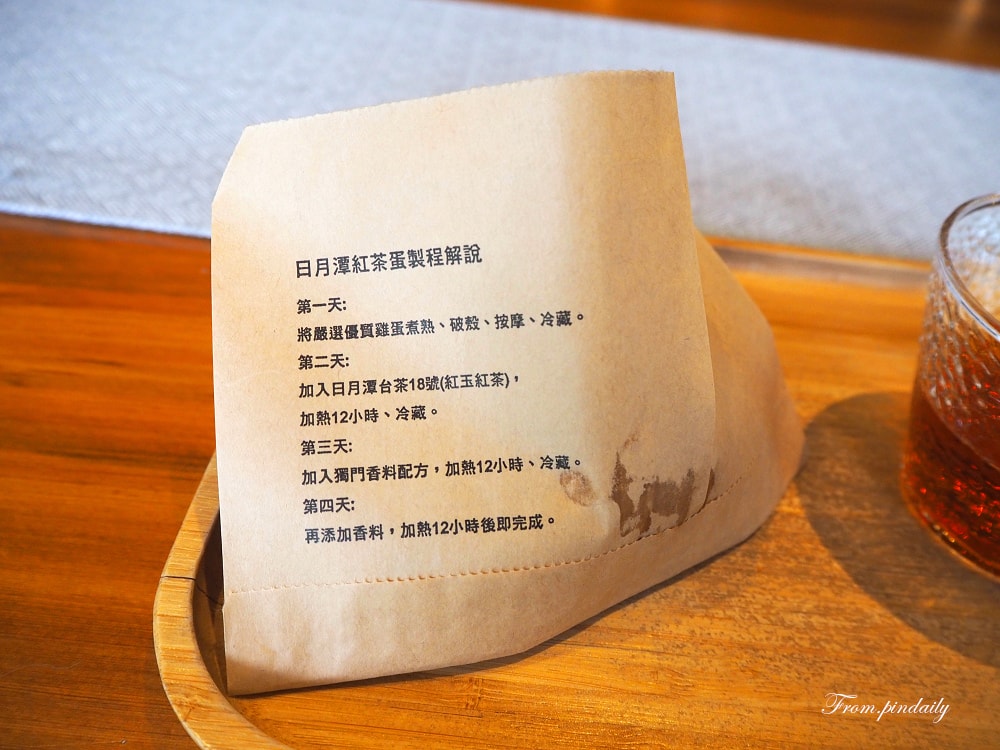 日月潭紅茶蛋製程解說
第一天:
將嚴選優質雞蛋煮熟、破殼、按摩、冷藏。
第二天:
加入日月潭台茶18號(紅玉紅茶)，
加熱12小時、冷藏。
第三天:
加入獨門香料配方，加熱12小時、冷藏。
第四天:
再添加香料，加熱12小時後即完成。
From.pindaily